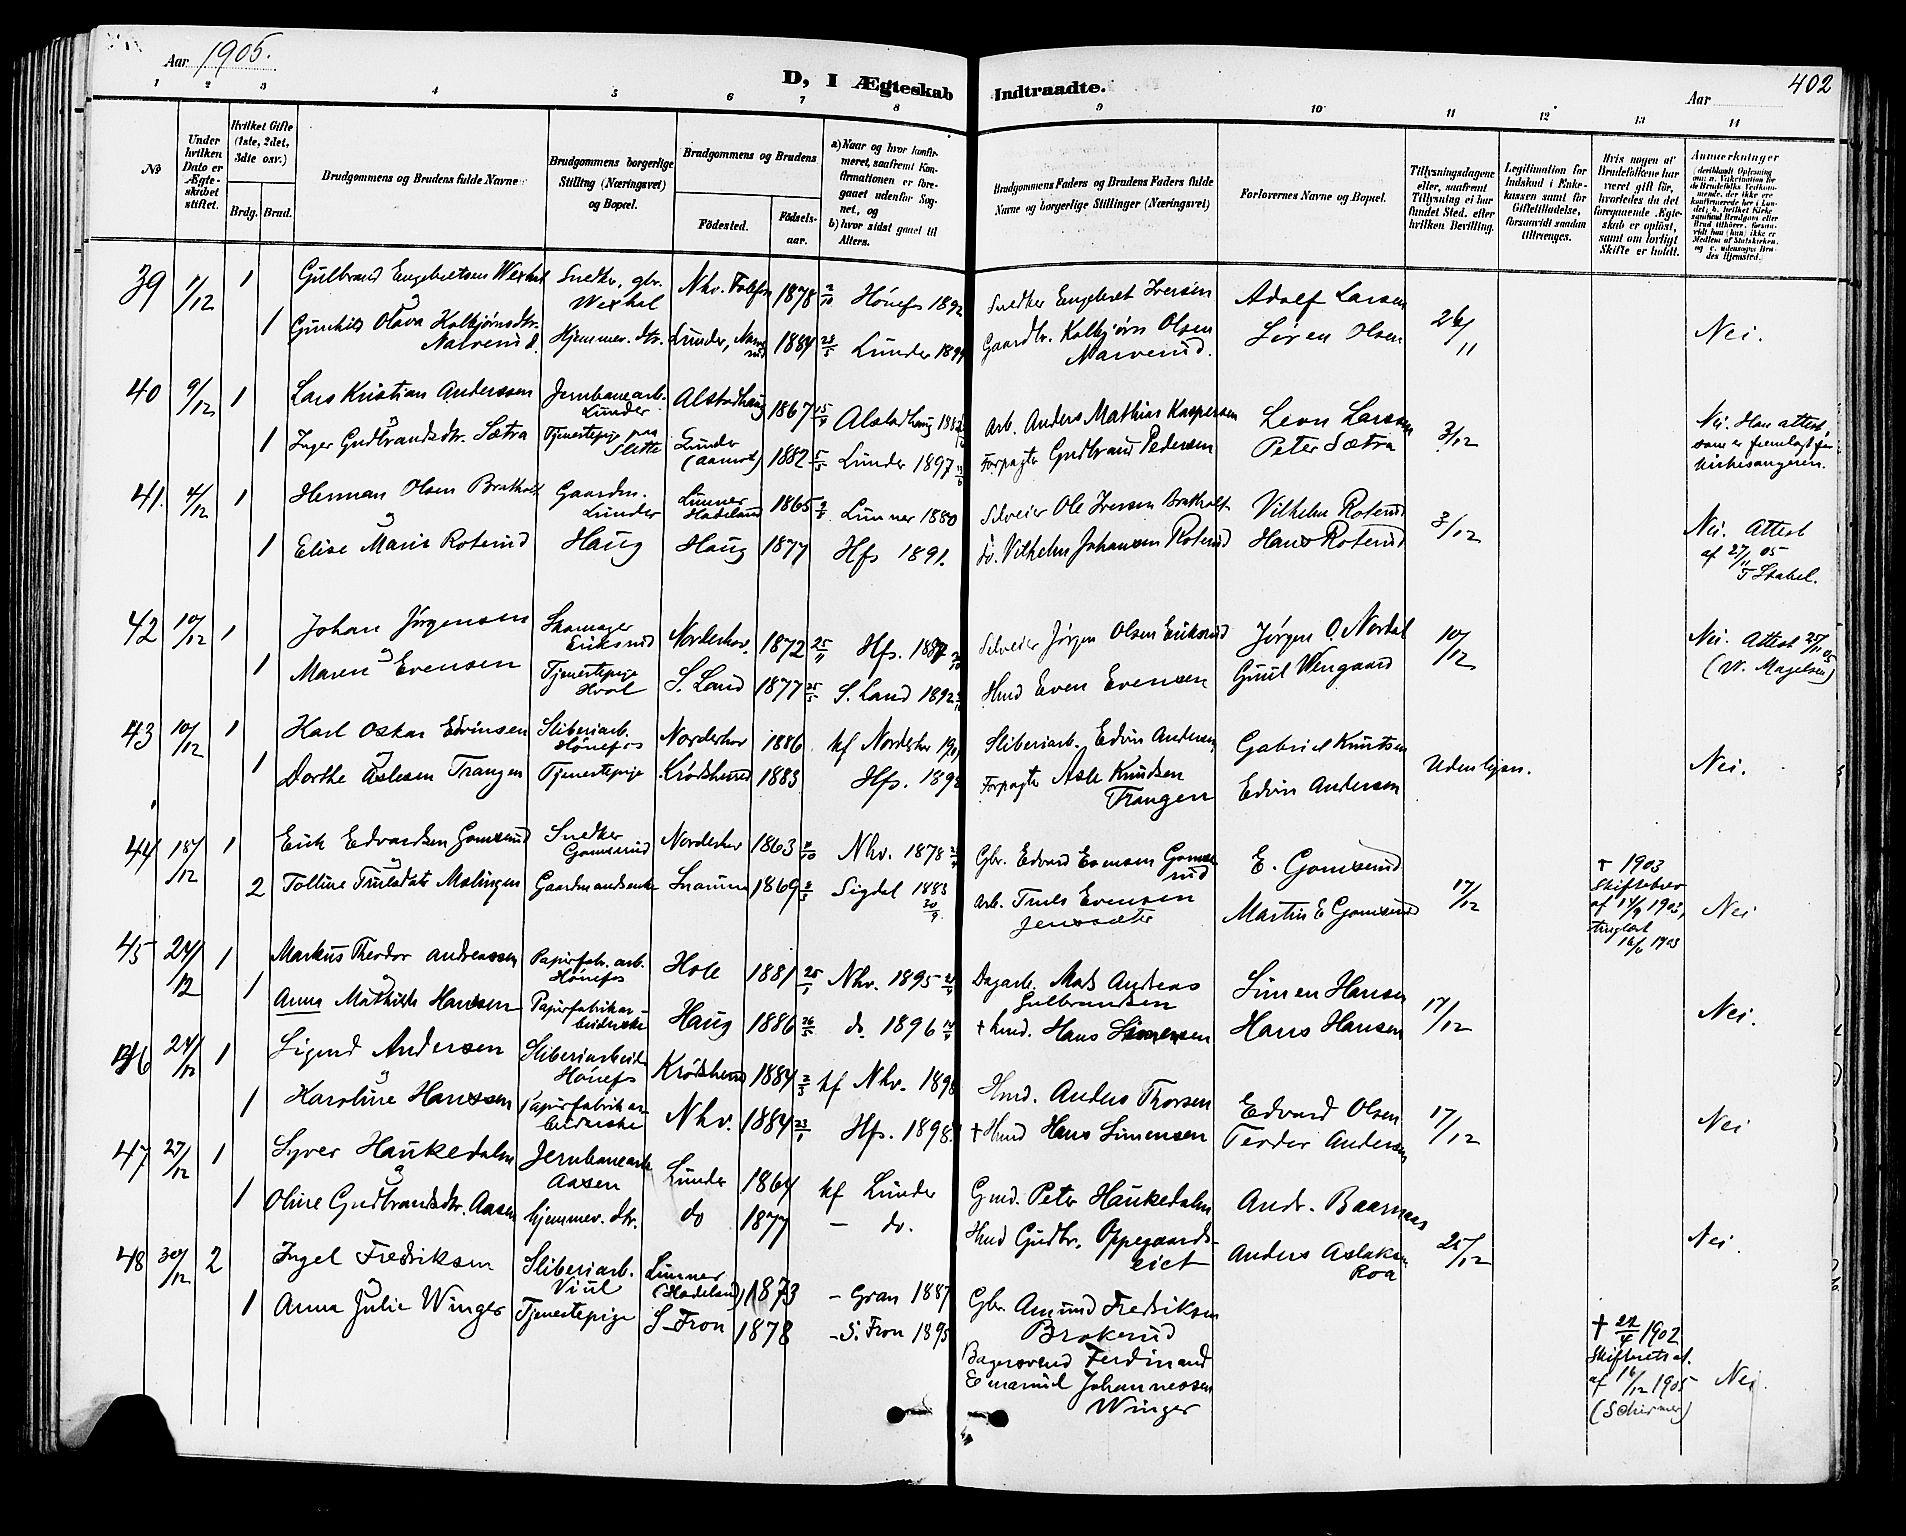 Aar 1905.
D, I Ægteskab Indtraadte.
Aar
402
1 2 3 4 5 6 7 8 9 10 11 12 13 14
No
Under hvilken Dato er Ægteskabet stiftet.
Hvilket Gifte (1ste, 2det, 3die osv.)
Brdg. Brud.
Brudgommens og Brudens fulde Navne
Brudgommens borgerlige Stilling (Næringsvei) og Bopæl.
Brudgommens og Brudens
Födested. Födselsaar.
a) Naar og hvor konfirmeret, saafremt Konfirmationen er foregaaet udenfor Sognet, og
b) hvor sidst gaaet til Alters.
Brudgommens Faders og Brudens Faders fulde Navne og borgerlige Stillinger (Næringsvei)
Forlovernes Navne og Bopæl.
Tillysningsdagene eller, saafremt Tillysning ei har fundet Sted, efter hvilken Bevilling.
Legitimation for Indskud i Enkekassen samt for Giftetilladelse, forsaavidt saadan tiltrænges.
Hvis nogen af Brudefolkene har været gift för, hvorledes da det foregaaende Ægteskab er oplöst, samt om lovligt Skifte er holdt.
Anmærkninger
39 1/12 1 Gulbrand Engebretsen Wexhal Snedk., gbr. Wexhal Nhv. 1878 2/10 Hønefs 1892 Snedker Engebret Iversen Adolf Larsen 26/11 Nei.
1 Gunhild Olava Kolbjørnsdtr. Narverud. Hjemmev. dtr. Lunder, 1884 28/5 Lunder Gaardbr. Kolbjørn Olsen Narverud. Søren Olsen
40 9/12 1 Lars Kristian Anderssen Jernbanearb. Lunder Alstadhaug 1867 Alstadhaug arb. Anders Mathias Kaspersen Leon Larsen 3/12 Nei. Han attest, som er fremlagt for kirkesangeren.
1 Inger Gudbrandsdtr. Sætra Tjenestepige paa Slette Lunder (aamot) 1882 5/5 Lunder 1897 Forpagter Gudbrand Pedersen Peter Sætra
41. 4/12 1 Herman Olsen Bratholt Gaardm. Lunder Lunner Hadeland 1865 Lunner 1880 Selveier Ole Iversen Bratholt Vilhelm Roterud 3/12 Nei. Attest af 27/11 05 F Stabel.
1 Elise Marie Roterud Haug Haug 1877 Hfs 1891. do. Vilhelm Johansen Roterud Hans Roterud
42 10/12 1 Johan Jørgensen Skomager Eriksrud Norderhov. 1872 25/11 Hfs. 1887 Selveier Jørgen Olsen Eriksrud Jørgen O. Nordal 10/12 Nei. Attest 25/11 05 (W. Magelsen)
1 Maren Evensen Tjenestepige Hval S. Land 1877 25/5 S. Land 1892 Hmd Even Evensen Guul Wengaard
43 10/12 1 Karl Oskar Edvinsen Sliberiarb. Hønefos Norderhov 1886 kf Norderhov Sliberiarb. Edvin Andersen Gabriel Knutsen Uden lysn. Nei.
1 Dorthe Aslesen Trangen Tjenestepige Krødsherred 1883 Hfs. Forpagter Asle Knudsen Trangen Edvin Andersen
44 18/12 1 Erik Edvardsen Gomserud Snedker Gomserud Norderhov 1863 Nhv. 1878 Gbr. Edvard Evensen Gomserud E. Gomserud 17/12 † 1903 Skiftebrev af 14/9 1903, tinglæst 16/ 1903 Nei
2 Tolline Trulsdatr Molingen Gaardmandsenke Snarum 1869 Sigdal 1883 20/9. arb. Truls Evensen Jenssæter Martin E Gomserud
45 24/12 1 Markus Theodor Andreassen Papirfab. arb. Hønefos Hole 1881 25/ Nhv. 1895 Dagarb. Mads Andreas Gulbrandsen Simen Hansen 17/12 Nei.
1 Anna Mathilde Hanssen Papirfabrikarbeiderske Haug 1886 26/5 do. 1896 † hmd. Hans Simensen Hans Hansen
46 24/12 1 Sigurd Andersen Sliberiarbeid. Hønefs Krødsherred 1884 2/3 kf Nhv. 1898 Hmd. Anders Thorsen Edvard Olsen 17/12 Nei
1 Karoline Hanssen Papirfabrikarbeiderske Nhv. 1884 23/1 Hfs. 1898. † Hmd Hans Simensen Teodor Andersen
47 27/12 1 Syver Haukedalen Jernbanearb. Aasen Lunder 1864 kf Lunder Gmd. Peter Haukedalen Andr. Baarnaas 25/12 Nei.
1 Oline Gudbrandsdtr. Aasen hjemmev. dtr. do 1877 — do. Hmd Gudbr. Oppegaardseiet Anders Aslaksen Roa
48 30/12 2 Ingel Fredriksen Sliberiarb. Viul Lunner (Hadeland) 1873 - Gran 1887 Gbr. Amund Fredriksen Brakerud † 22/4 1902 Skifteretsat. af 16/12 1905 (Schirmer) Nei.
1 Anna Julie Winger Tjenestepige S-Fron 1878 - S. Fron 1893 Bagersvend Ferdinand Emanuel Johannessen Winger